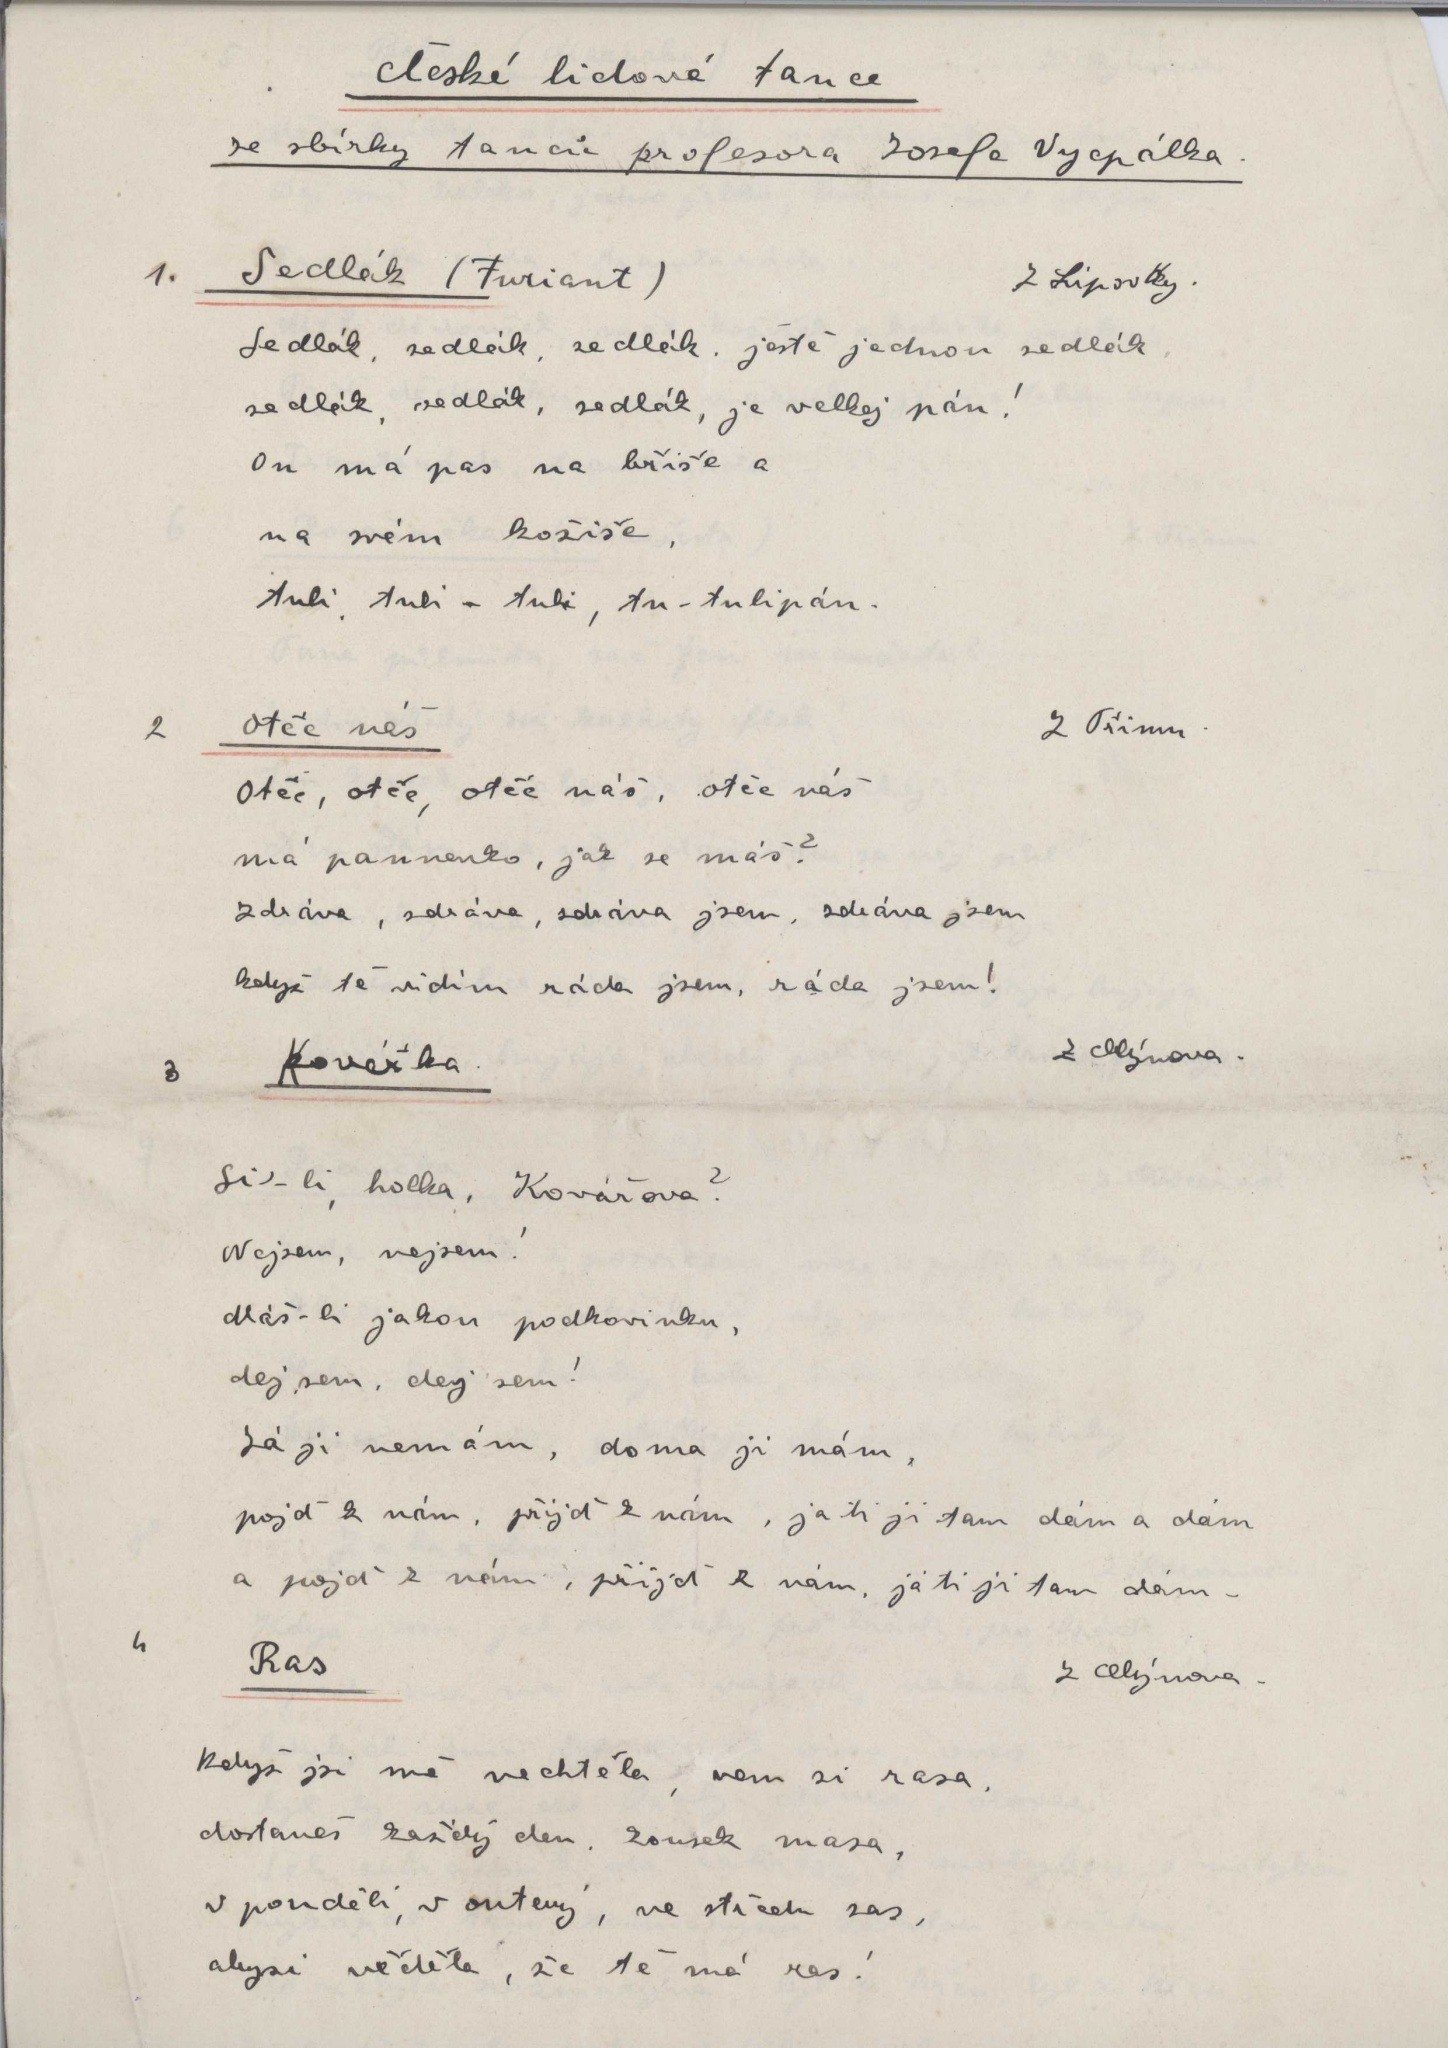 České lidové tance
ze sbírky tanců profesora Josefa Vycpálka.
1. Sedlák (Furiant) Z Lipovky.
Sedlák, sedlák, sedlák, ještě jednou sedlák,
sedlák, sedlák, sedlák, je velkej pán!
On má pas na břiše a
na svém kožiše,
tuli, tuli - tuli, tu-tulipán.
2 Otče náš Z Třimu.
Otče, otče, otče náš, otče náš
má pannenko, jak se máš?
Zdráva, zdráva, zdráva jsem, zdráva jsem
když tě vidím ráda jsem, ráda jsem!
3 Kovářka. Z Mlýnova.
Si-li, holka, Kovářova?
Nejsem, nejsem!
Máš-li jakou podkovinku,
dej sem, dej sem!
Já ji nemám, doma ji mám,
pojď k nám, přijď k nám, ja ti ji tam dám a dám
a pojď k nám, přijď k nám, já ti ji tam dám -
4 Ras Z Mlýnova.
Když jsi mě nechtěla, vem si rasa,
dostaneš každý den, kousek masa,
v pondělí, v outerý, ve středu zas,
abysi věděla, že tě má ras!